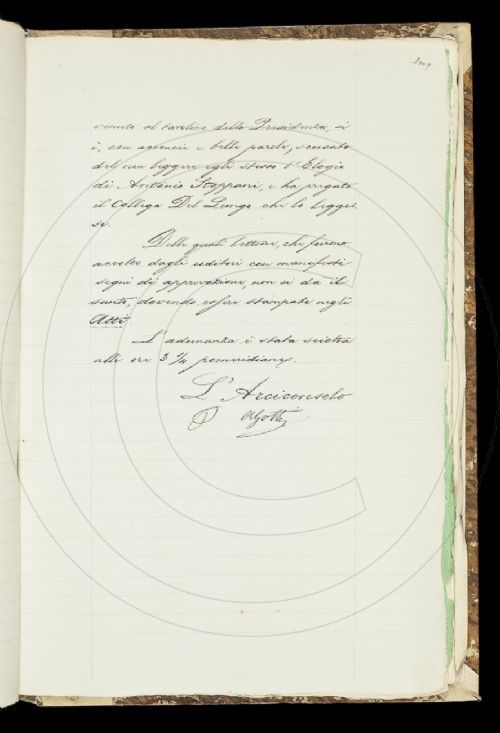 venuto al tavolino della Presidenza, si
è, con acconcie e belle parole, scusato
del non leggere egli stesso l'Elogio
di Antonio Stoppani, e ha pregato
il Collega Del Lungo che lo legges-
se.
Delle quali letture, che furono
accolte dagli uditori con manifesti
segni di approvazione, non si da il
sunto, dovendo essere stampate negli
Atti.
L'adunanza è stata sciolta
alle ore 3 1/4 pomeridiane.
L'Arciconsolo
AGotti